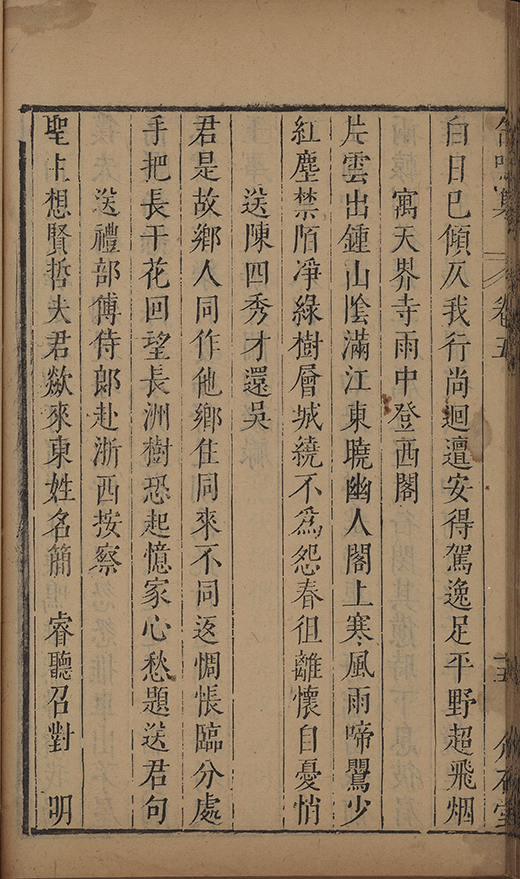 缶鳴集 卷五 十五
白日已傾仄我行尚迴邅安得駕逸足平野超飛烟
寓天界寺雨中登西閣
片雲出鍾山陰滿江東曉幽人閣上寒風雨啼鸎少
紅塵禁陌凈綠樹層城繞不爲怨春徂離懷自憂悄
送陳四秀才還吳
君是故鄉人同作他鄉住同來不同返惆悵臨分處
手把長干花回望長洲樹恐起憶家心愁題送君句
送禮部傅侍郎赴浙西按察
聖上想賢哲夫君歘來東姓名簡 睿聽召對 明